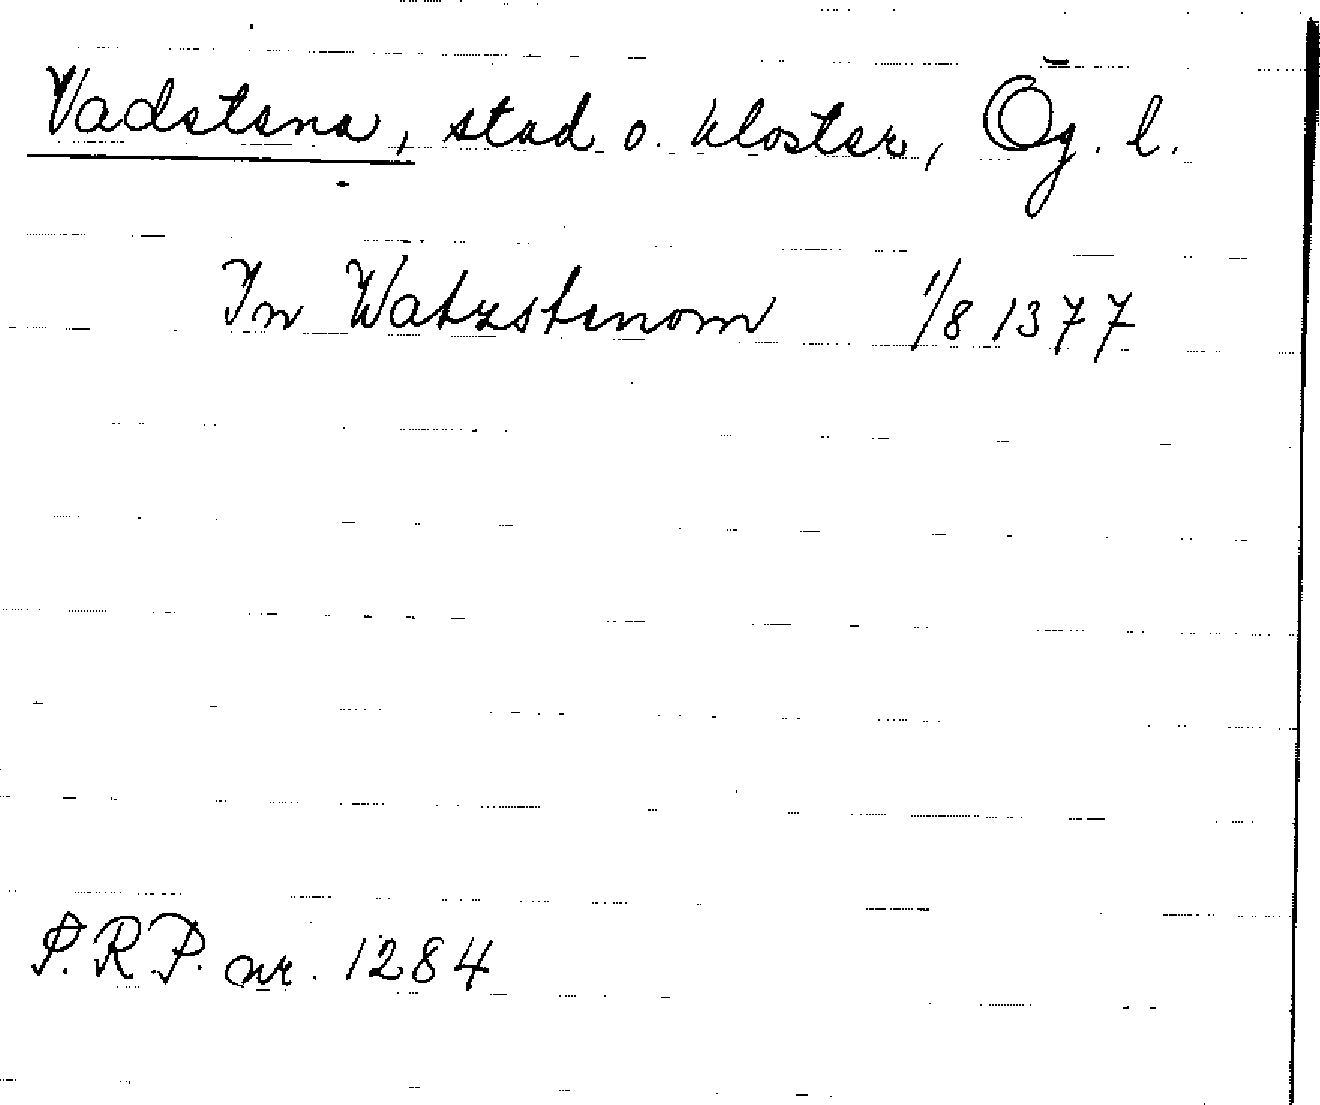 Vadstena, stad o. kloster, Ög. l.
In Watzstenom 1/8 1377
S.R.P. nr. 1284